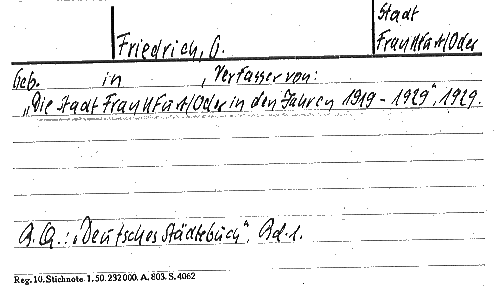 Stadt
Friedrich, G. Frankfurt/Oder
Geb. in , Verfasser von:
„Die Stadt Frankfurt/Oder in den Jahren 1919 - 1929", 1929.
A.Q.: „Deutsches Städtebuch", Bd. 1.
Reg. 10. Stichnote 1. 50. 232000. A. 803. S. 4062